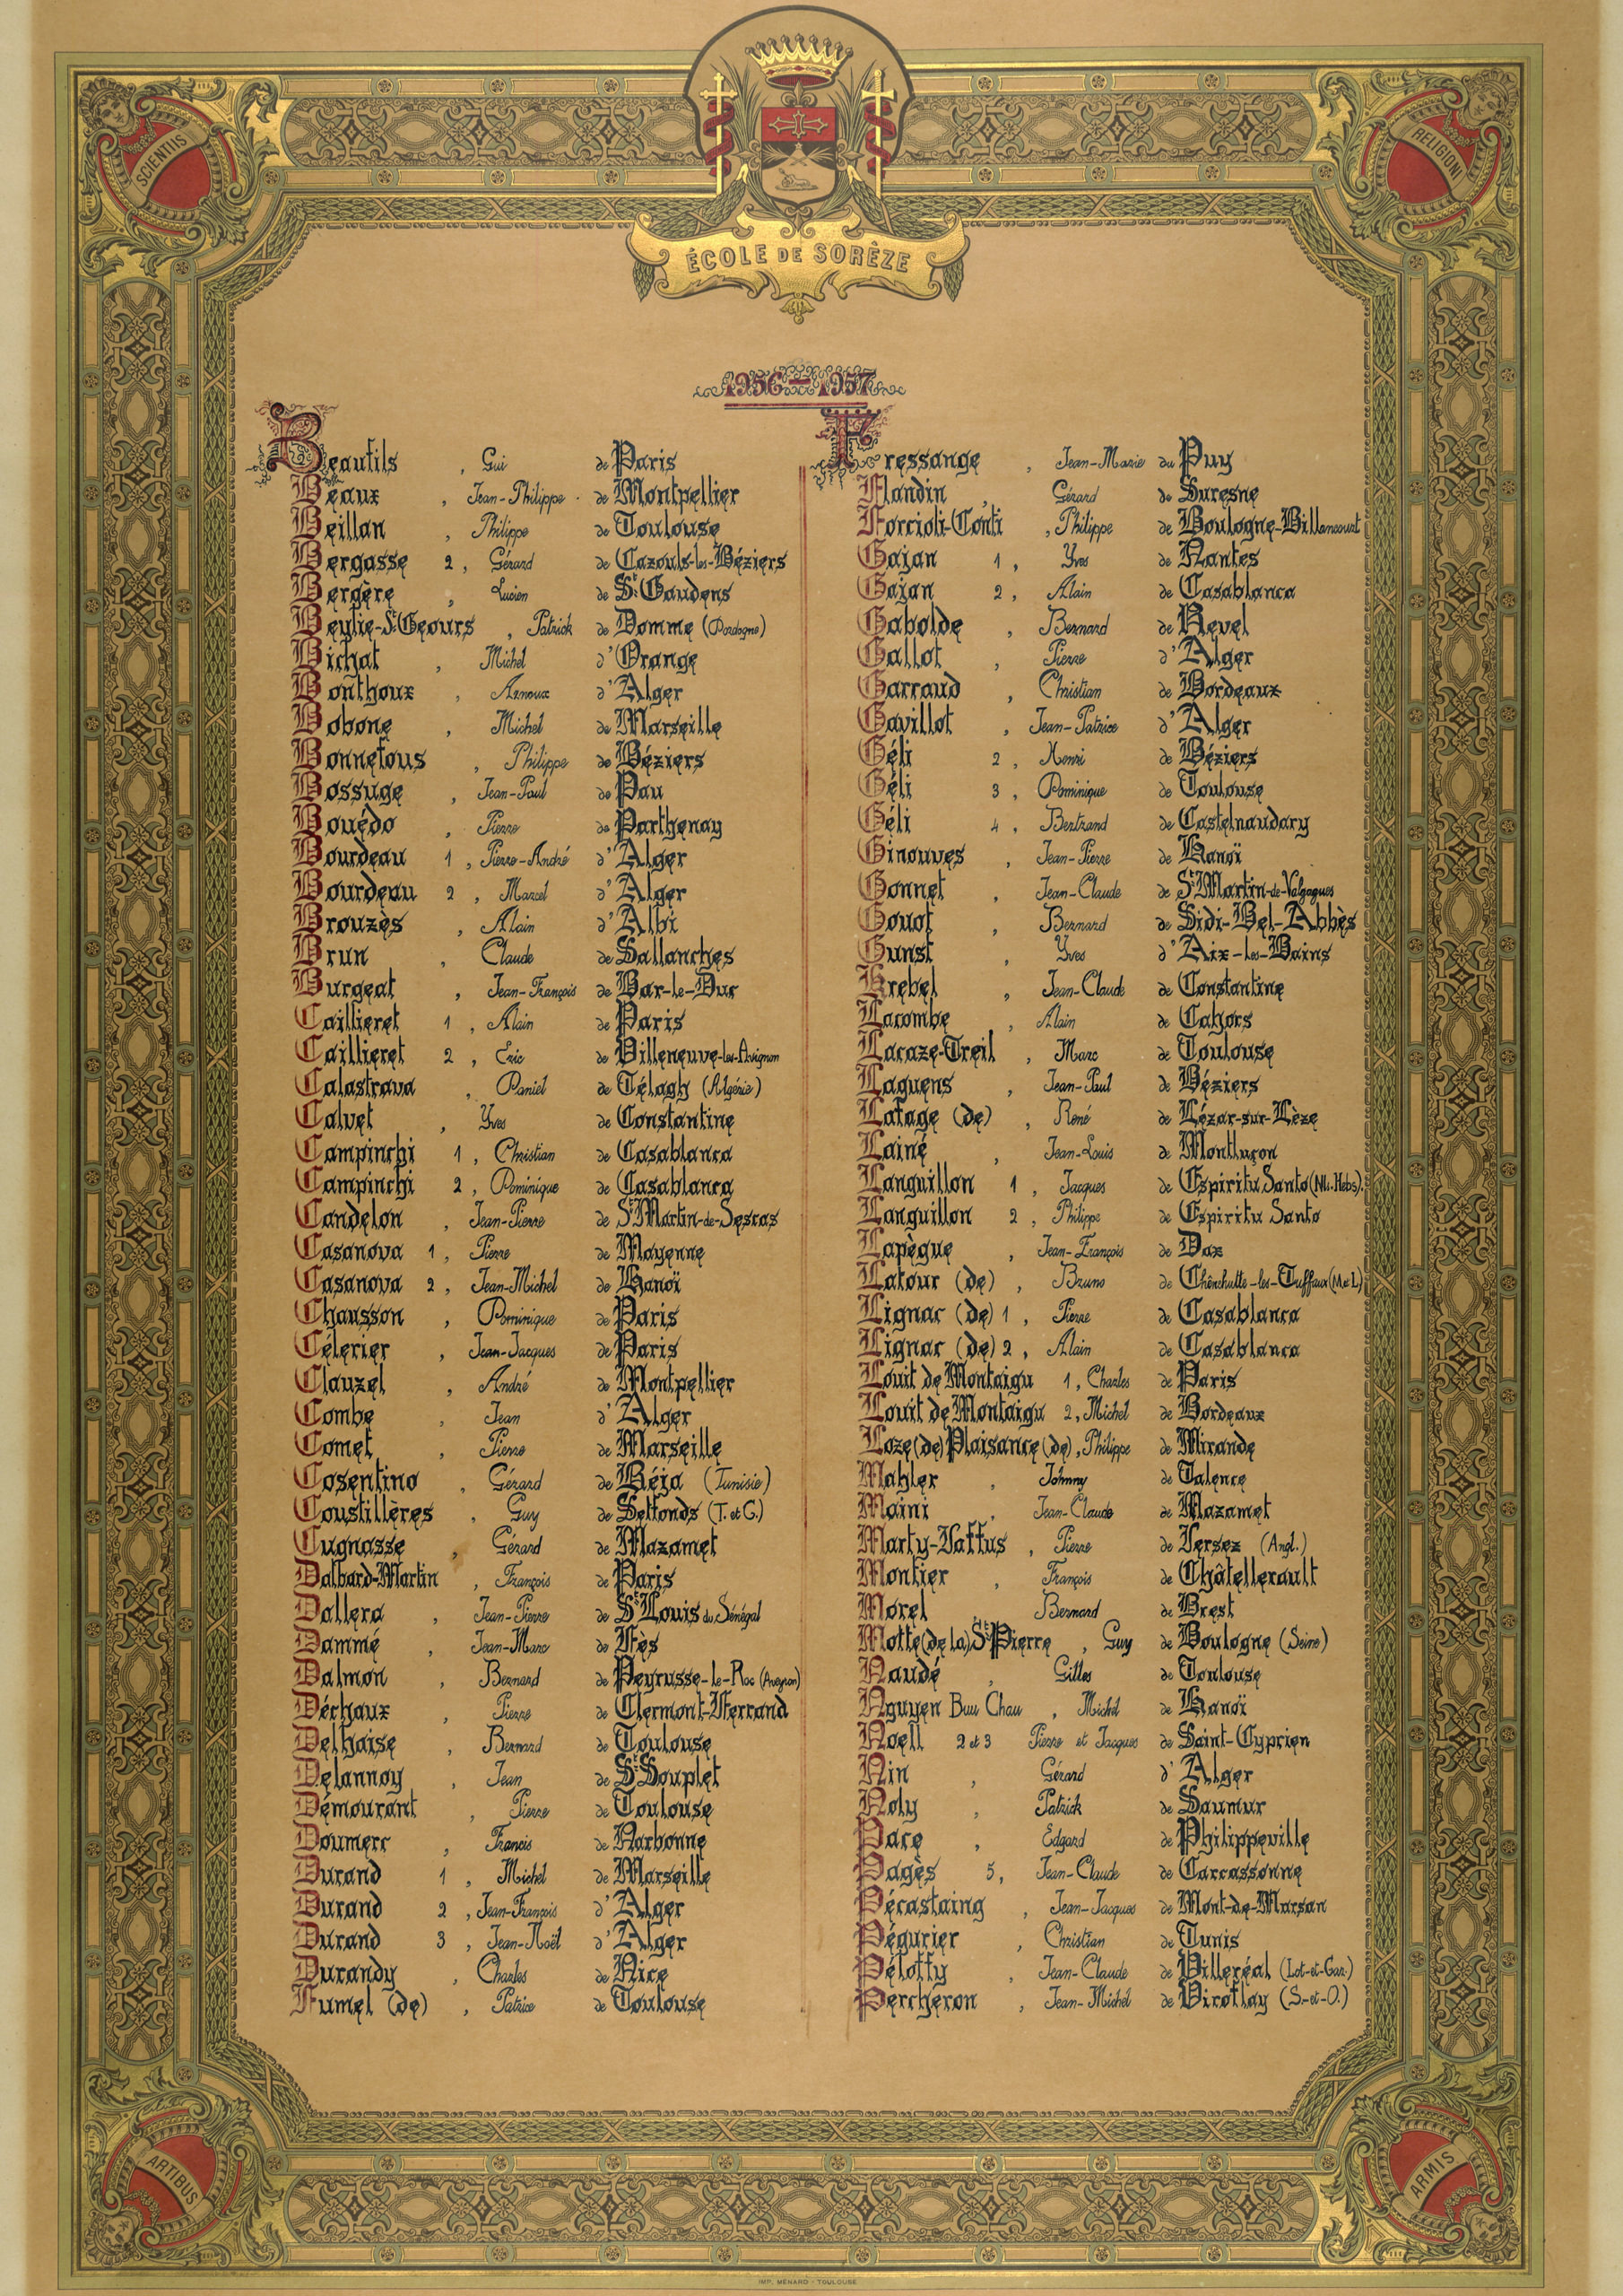 SCIENTIIS
RELIGIONI
ÉCOLE DE SORÈZE
1956-1957
Beaufils, Gui de Paris
Beaux, Jean-Philippe de Montpellier
Beillan, Philippe de Toulouse
Bergasse 2, Gérard de Cazouls-les-Béziers
Bergère, Lucien de St Gaudens
Beylie-St Geours, Patrick de Domme (Dordogne)
Bichat, Michel d'Orange
Bonthoux, Arnoux d'Alger
Bobone, Michel de Marseille
Bonnefous, Philippe de Béziers
Bossuge, Jean-Paul de Pau
Bouédo, Pierre de Parthenay
Bourdeau 1, Pierre-André d'Alger
Bourdeau 2, Marcel d'Alger
Brouzès, Alain d'Albi
Brun, Claude de Sallanches
Burgeat, Jean-François de Bar-le-Duc
Caillieret 1, Alain de Paris
Caillieret 2, Eric de Villeneuve-les-Avignon
Calastrava, Daniel de Télagh (Algérie)
Calvet, Yves de Constantine
Campinchi 1, Christian de Casablanca
Campinchi 2, Dominique de Casablanca
Candelon, Jean-Pierre de St Martin-de-Sescas
Casanova 1, Pierre de Mayenne
Casanova 2, Jean-Michel de Hanoï
Chausson, Dominique de Paris
Célerier, Jean-Jacques de Paris
Clauzel, André de Montpellier
Combe, Jean d'Alger
Comet, Pierre de Marseille
Cosentino, Gérard de Béja (Tunisie)
Coustillères, Guy de Septfonds (T. et G.)
Cugnasse, Gérard de Mazamet
Dalbard-Martin, François de Paris
Dallera, Jean-Pierre de St Louis du Sénégal
Dammé, Jean-Marc de Fès
Dalmon, Bernard de Peyrusse-le-Roc (Aveyron)
Déchaux, Pierre de Clermont-Ferrand
Delhaise, Bernard de Toulouse
Delannoy, Jean de St Souplet
Démourant, Pierre de Toulouse
Doumerc, Francis de Narbonne
Durand 1, Michel de Marseille
Durand 2, Jean-François d'Alger
Durand 3, Jean-Noël d'Alger
Durandy, Charles de Nice
Fumel (de), Patrice de Toulouse
Fressange, Jean-Marie du Puy
Flandin, Gérard de Suresne
Forcioli-Conti, Philippe de Boulogne-Billancourt
Gajan 1, Yves de Nantes
Gajan 2, Alain de Casablanca
Gabolde, Bernard de Revel
Gallot, Pierre d'Alger
Garraud, Christian de Bordeaux
Gavillot, Jean-Patrice d'Alger
Géli 2, Henri de Béziers
Géli 3, Dominique de Toulouse
Géli 4, Bertrand de Castelnaudary
Ginouves, Jean-Pierre de Hanoï
Gonnet, Jean-Claude de St Martin-de-Valgagues
Gouot, Bernard de Sidi-Bel-Abbès
Gunst, Yves d'Aix-les-Bains
Krebel, Jean-Claude de Constantine
Lacombe, Alain de Cahors
Lacaze-Treil, Marc de Toulouse
Laguens, Jean-Paul de Béziers
Lafage (de), René de Lézar-sur-Lèze
Lainé, Jean-Louis de Montluçon
Languillon 1, Jacques de Espiritu Santo (Nlles-Hebs).
Languillon 2, Philippe de Espiritu Santo
Lapègue, Jean-François de Dax
Latour (de), Bruno de Chênehutte-les-Tuffeaux (M et L)
Lignac (de) 1, Pierre de Casablanca
Lignac (de) 2, Alain de Casablanca
Louit de Montaigu 1, Charles de Paris
Louit de Montaigu 2, Michel de Bordeaux
Loze (de) Plaisance (de), Philippe de Mirande
Mahler, Johnny de Talence
Maini, Jean-Claude de Mazamet
Marty-Vaffus, Pierre de Jersez (Angl.)
Montier, François de Châtellerault
Morel Bernard de Brest
Motte (de la) St Pierre, Guy de Boulogne (Seine)
Naudé, Gilles de Toulouse
Nguyen Buu Chau, Michel de Hanoï
Noell 2 et 3 Pierre et Jacques de Saint-Cyprien
Nin, Gérard d'Alger
Noly, Patrick de Saumur
Pace, Edgard de Philippeville
Pagès 5, Jean-Claude de Carcassonne
Pécastaing, Jean-Jacques de Mont-de-Marsan
Pégurier, Christian de Tunis
Péloffy, Jean-Claude de Villeréal (Lot-et-Gar.)
Percheron, Jean-Michel de Viroflay (S.-et-O.)
ARTIBUS
ARMIS
IMP. MÉNARD - TOULOUSE